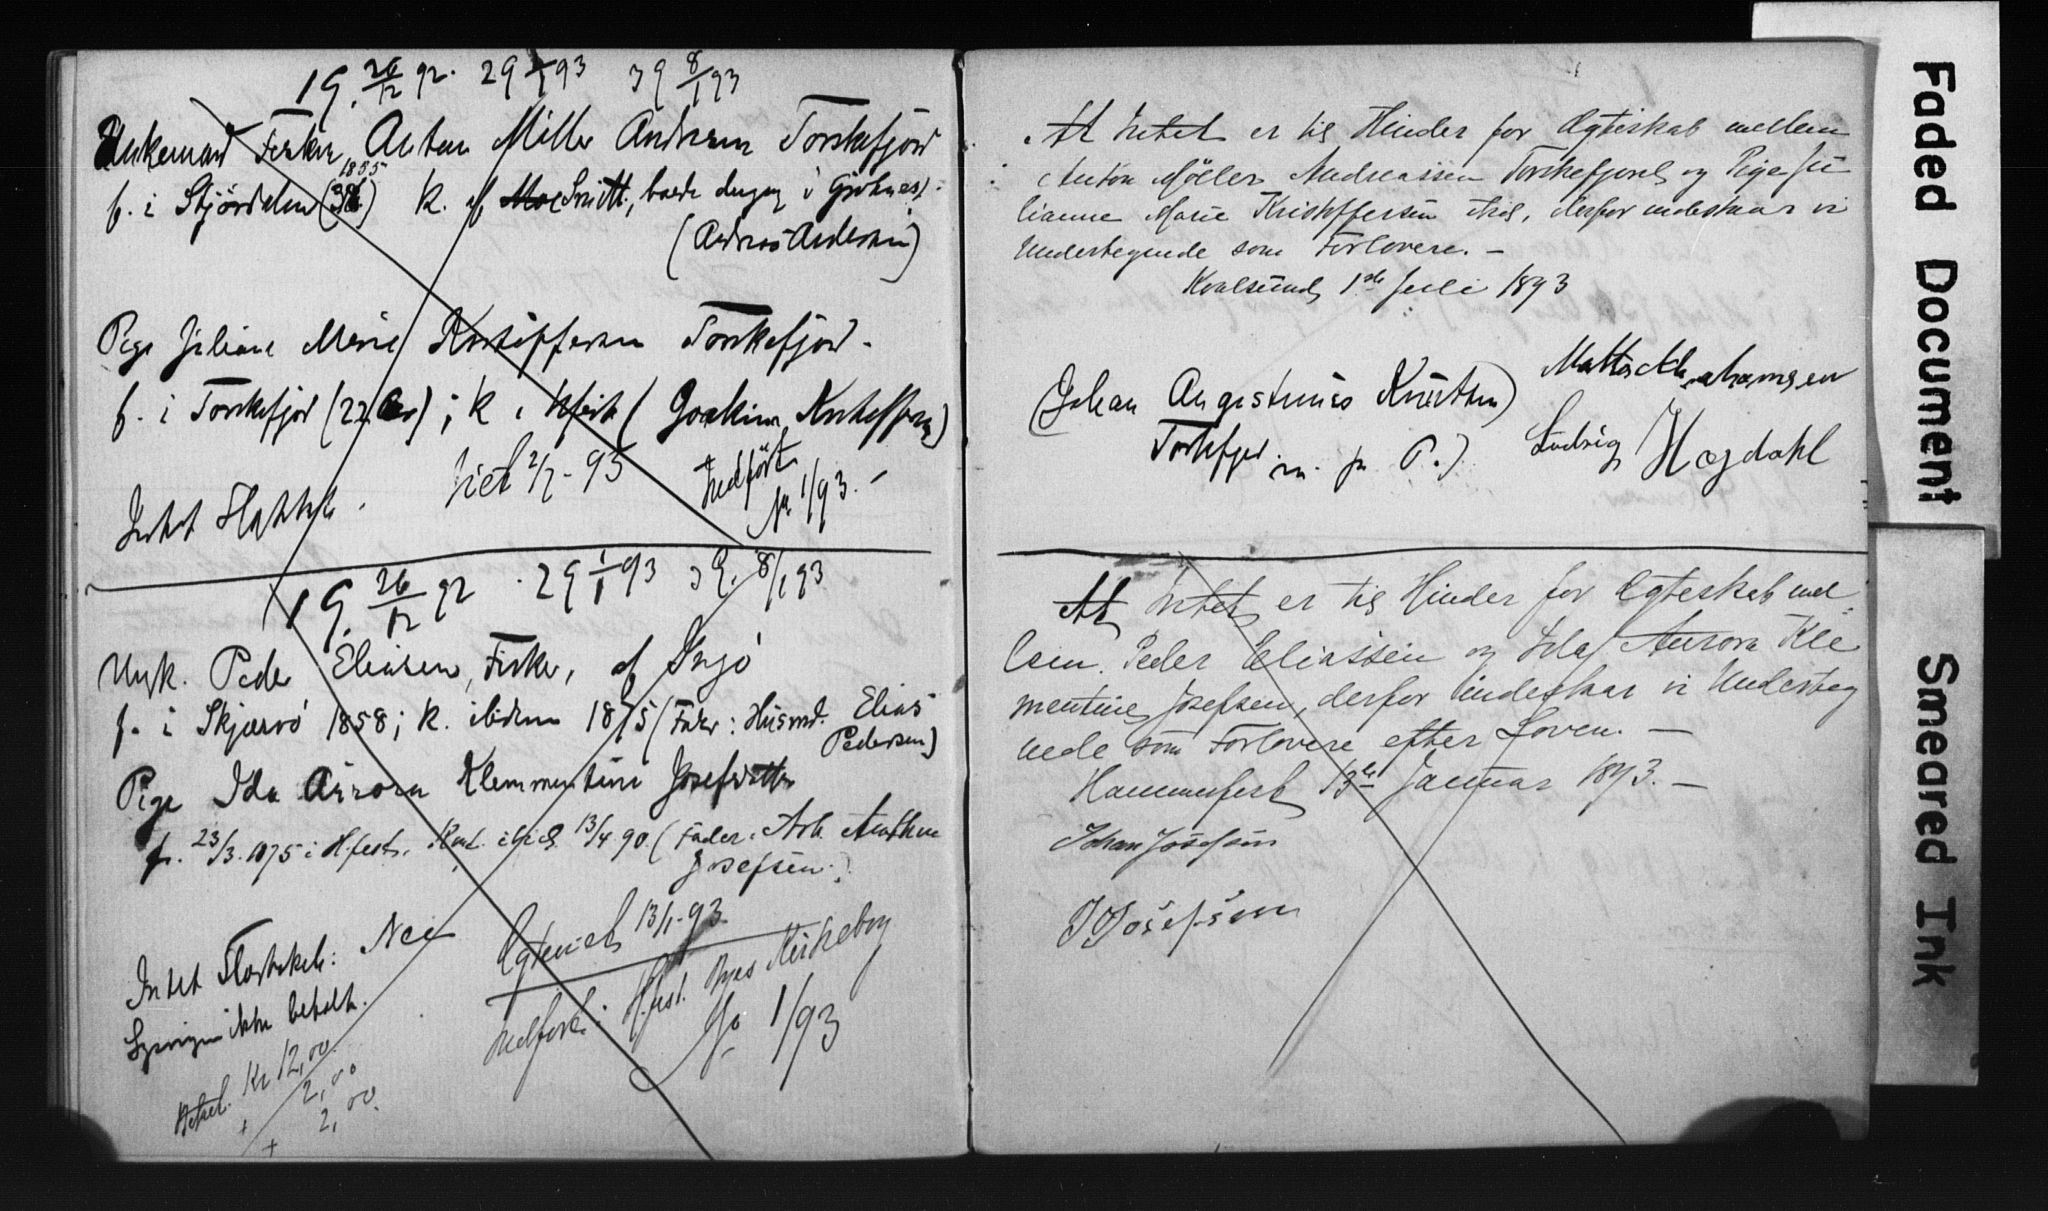 1 G. 26/12 92. 2 G 1/1 93 3 G 8/1 93
Unkemand Fisker Anton Müller Andresen Torskefjord
1855
f. i Stjördalen K. af Smitt, boede dengang i
(Andreas Andersen)
Pige Juliane Marie Kristoffersen Torskefjord.
f. i Torskefjord (22 Aar); k. i Hfest (Joakim Kristoffersen)
Intet Slægtsk. Viet 2/7-93 Indført
No 1/93.-
1 G. 26/12 92 . 2 G 1/1 93 3 G. 8/1 93
Ungk. Peder Eliasen, Fisker, af Ingö
f. i Skjærvö 1858; k. ibidem 1875 (Fader: Husmd. Elias
Pedersen)
Pige Ida Aurora Klemmentine Josefsen
f. 23/3. 1875 i Hfest. Konf. ibid 13/4 90. (Fader: Arb.
Josefsen.)
Intet Slægtskab: Nei Egteviet 13/1-93
ikke betalt. Indført i Hfest. Byes Kirkebog
No 1/93
Betalt. Kr 12,00
+ 2,00
+ 2,00.
At Intet er til Hinder for Ægteskab mellem
Anton Möller Andreassen Torskefjord og Pige Ju
lianne Marie Kristoffersen ibid, derfor indestaar vi
Undertegnede som Forlovere. -
Kvalsund 1ste Juli 1893
(Johan Angestinius
Torskefjord m. p. P.) Ludvig Høgdahl
At Intet er til Hinder for Ægteskab mel
lem Peder Eliassen og Ida Aurora Kle
mentine Josefsen, derfor indestaar vi Underteg
nede som Forlovere efter Loven. -
Hammerfest 13de Januar 1893. -
Johan Josefsen
J Josefsen
Faded Document
Smeared Ink